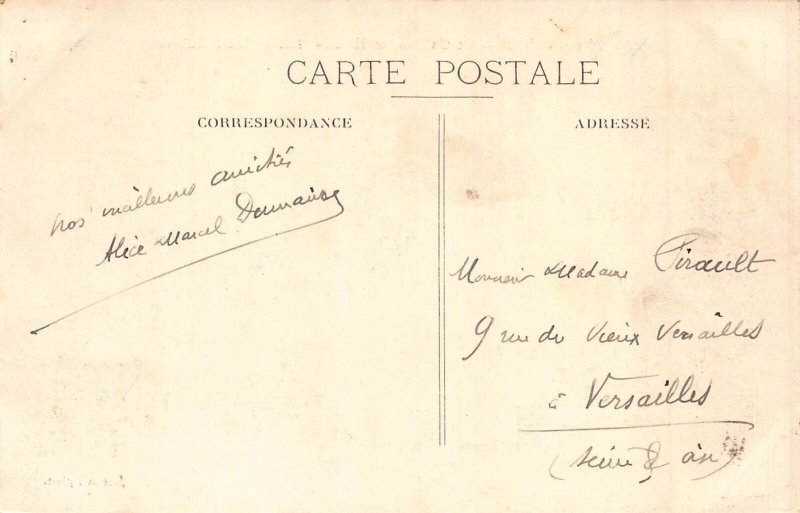 CARTE POSTALE
CORRESPONDANCE
ADRESSE
nos meilleures amitiés
Alice & Marcel
Monsieur & Madame Pirault
9 rue du Vieux Versailles
à Versailles
(Seine & Oise)